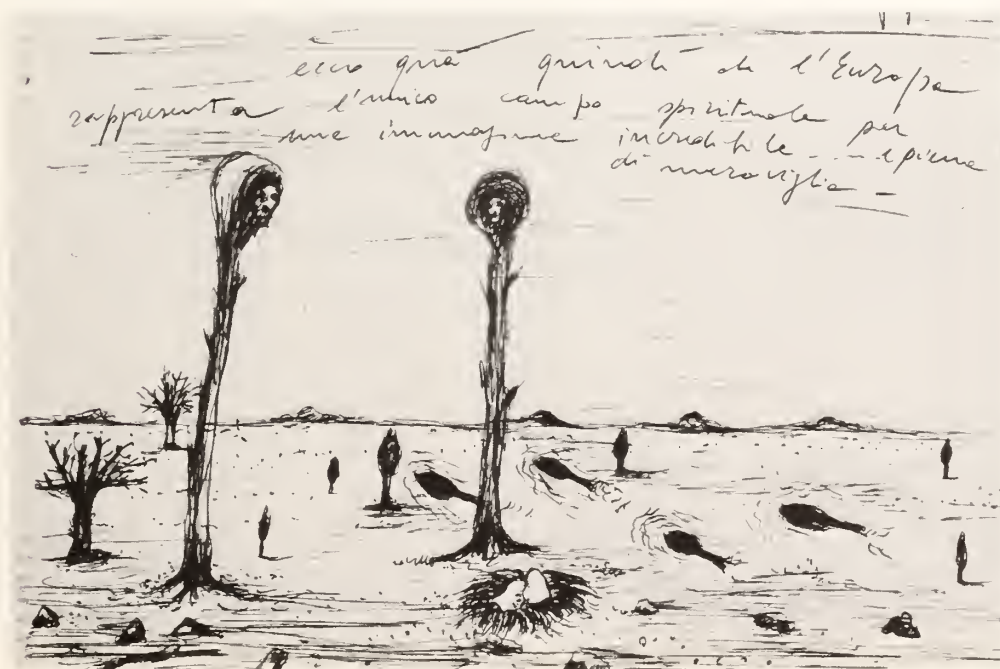 ecco quà quindi de l'Europa
rappresenta l'unico campo spirituale per
una immagine incredibile --- e piena
di meraviglia -